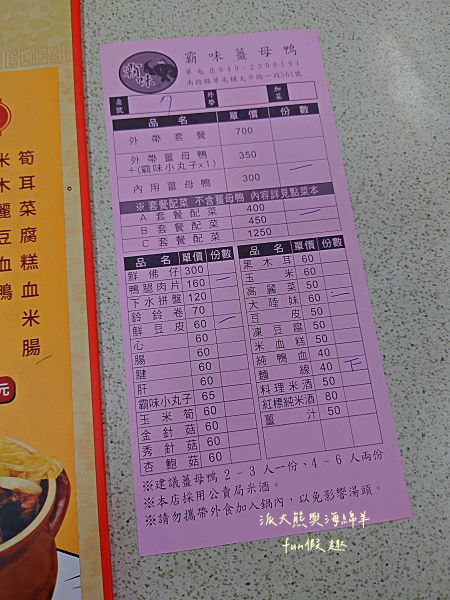 霸味薑母鴨
霸味
草屯店049-2390191
南投縣草屯鎮太平路一段561號
桌號 7 外帶 加菜
品名 單價 份數
外帶套餐 700
外帶薑母鴨+(霸味小丸子x1) 350
內用薑母鴨 300 一
※套餐配菜 不含薑母鴨 內容詳見點菜本
A 套餐配菜 400
B 套餐配菜 450 一
C 套餐配菜 1250
品名 單價 份數
鮮佛仔 300
鴨腿肉片 160 一
下水拼盤 120
鈴鈴卷 70
鮮豆皮 60 一
心 60
腸 60
腱 60
肝 60
霸味小丸子 65
玉米筍 60
金針菇 60
秀針菇 60
杏鮑菇 60
品名 單價 份數
黑木耳 60
玉米 60
高麗菜 50
大陸妹 60 一
豆皮 50
凍豆腐 50
米血糕 50
純鴨血 40
麵線 40 下
料理米酒 50
紅標純米酒 80
薑汁 50
※建議薑母鴨2-3人一份、4-6人兩份
※本店採用公賣局米酒。
※請勿攜帶外食加入鍋內，以免影響湯頭。
筍耳菜腐糕血米腸
米木麗豆血鴨
元
派大熊與海綿羊
fun假趣